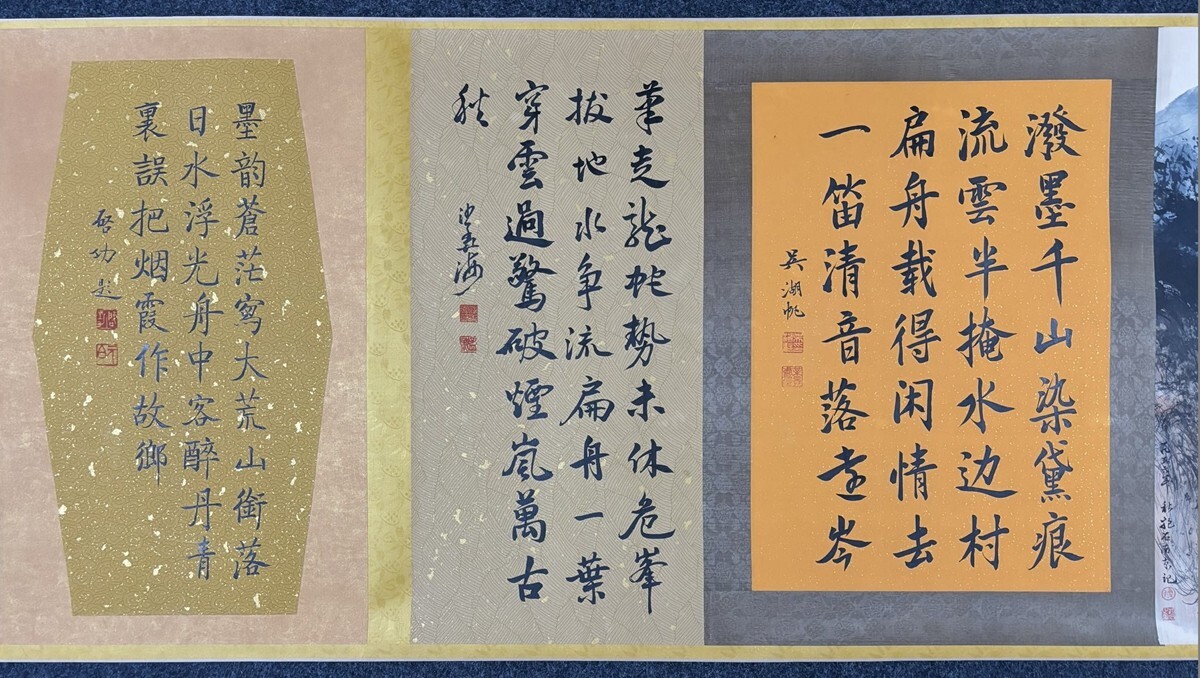 抱石南京记
潑墨千山染黛痕
流雲半掩水边村
扁舟載得闲情去
一笛清音落遠岑
吴湖帆
筆走龍蛇勢未休危峯
拔地水争流扁舟一葉
穿雲過驚破煙嵐萬古
秋
沙孟海
墨韵蒼茫寫大荒山銜落
日水浮光舟中客醉丹青
裏誤把烟霞作故鄉
启功题